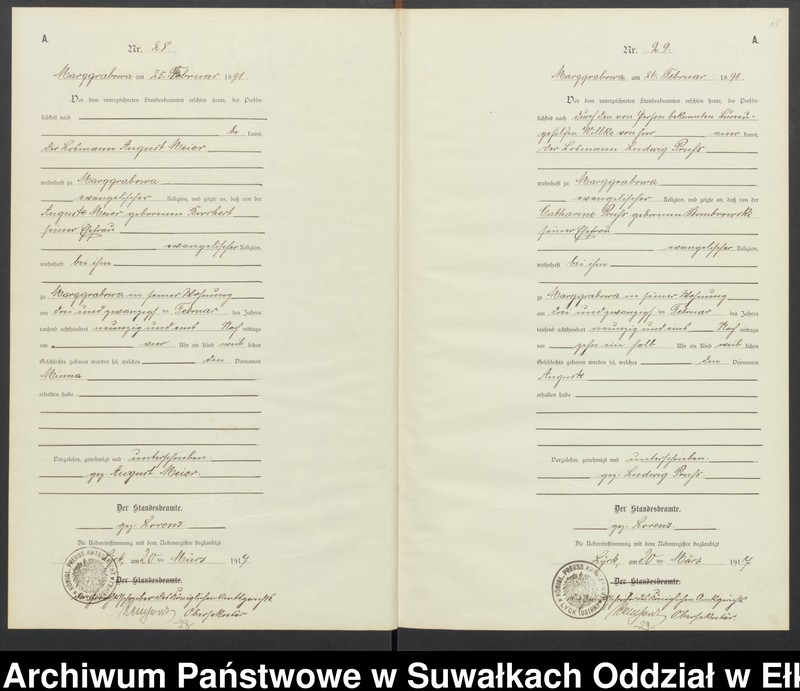 A.
Nr. 28.
Marggrabowa am 25. Februar 1891.
Vor dem unterzeichneten Standesbeamten erschien heute, der Persön-
lichkeit nach
be kannt,
der Losmann August Meier
wohnhaft zu Marggrabowa
evangelischer Religion, und zeigte an, daß von der
Auguste Meier geborenen
seiner Ehefrau
evangelischer Religion,
wohnhaft bei ihm
zu Marggrabowa in seiner Wohnung
am drei und zwanzigsten Februar des Jahres
tausend achthundert neunzig und eins Nach mittags
um vier Uhr ein Kind weib lichen
Geschlechts geboren worden sei, welches den Vornamen
Minna
erhalten habe
Vorgelesen, genehmigt und unterschrieben.
gez. August Meier.
Der Standesbeamte.
gez. Lorenz
Die Uebereinstimmung mit dem Nebenregister beglaubigt
Lyck, am 20ten März 1917
Der Standesbeamte.
Gerichtsschreiber des Königlichen Amtsgerichts
Obersekretär
A.
Nr. 29.
Marggrabowa am 26. Februar 1891.
Vor dem unterzeichneten Standesbeamten erschien heute, der Persön-
lichkeit nach durch den von Person bekannten Bureau-
gehilfen von hier kannt,
der Losmann Ludwig
wohnhaft zu Marggrabowa
evangelischer Religion, und zeigte an, daß von der
Catharine geborenen
seiner Ehefrau
evangelischer Religion,
wohnhaft bei ihm
zu Marggrabowa in seiner Wohnung
am drei und zwanzigsten Februar des Jahres
tausend achthundert neunzig und eins Nach mittags
um zehn ein halb Uhr ein Kind weib lichen
Geschlechts geboren worden sei, welches den Vornamen
Auguste
erhalten habe
Vorgelesen, genehmigt und unterschrieben.
gez. Ludwig
Der Standesbeamte.
gez. Lorenz
Die Uebereinstimmung mit dem Nebenregister beglaubigt
Lyck, am 20ten März 1917
Der Standesbeamte.
Gerichtsschreiber des Königlichen Amtsgerichts
Obersekretär.
Archiwum Państwowe w Suwałkach Oddział w Eł